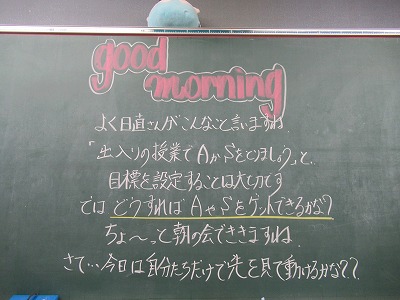 good
morning
よく日直さんがこんなこと言いますね
「出入りの授業でAかSをとりましょう」と、
目標を設定することは大切です
では どうすれば AやSをゲットできるかな?
ちょ〜っと朝の会できききますね
さて…今日は自分たちだけで先を見て動けるかな??